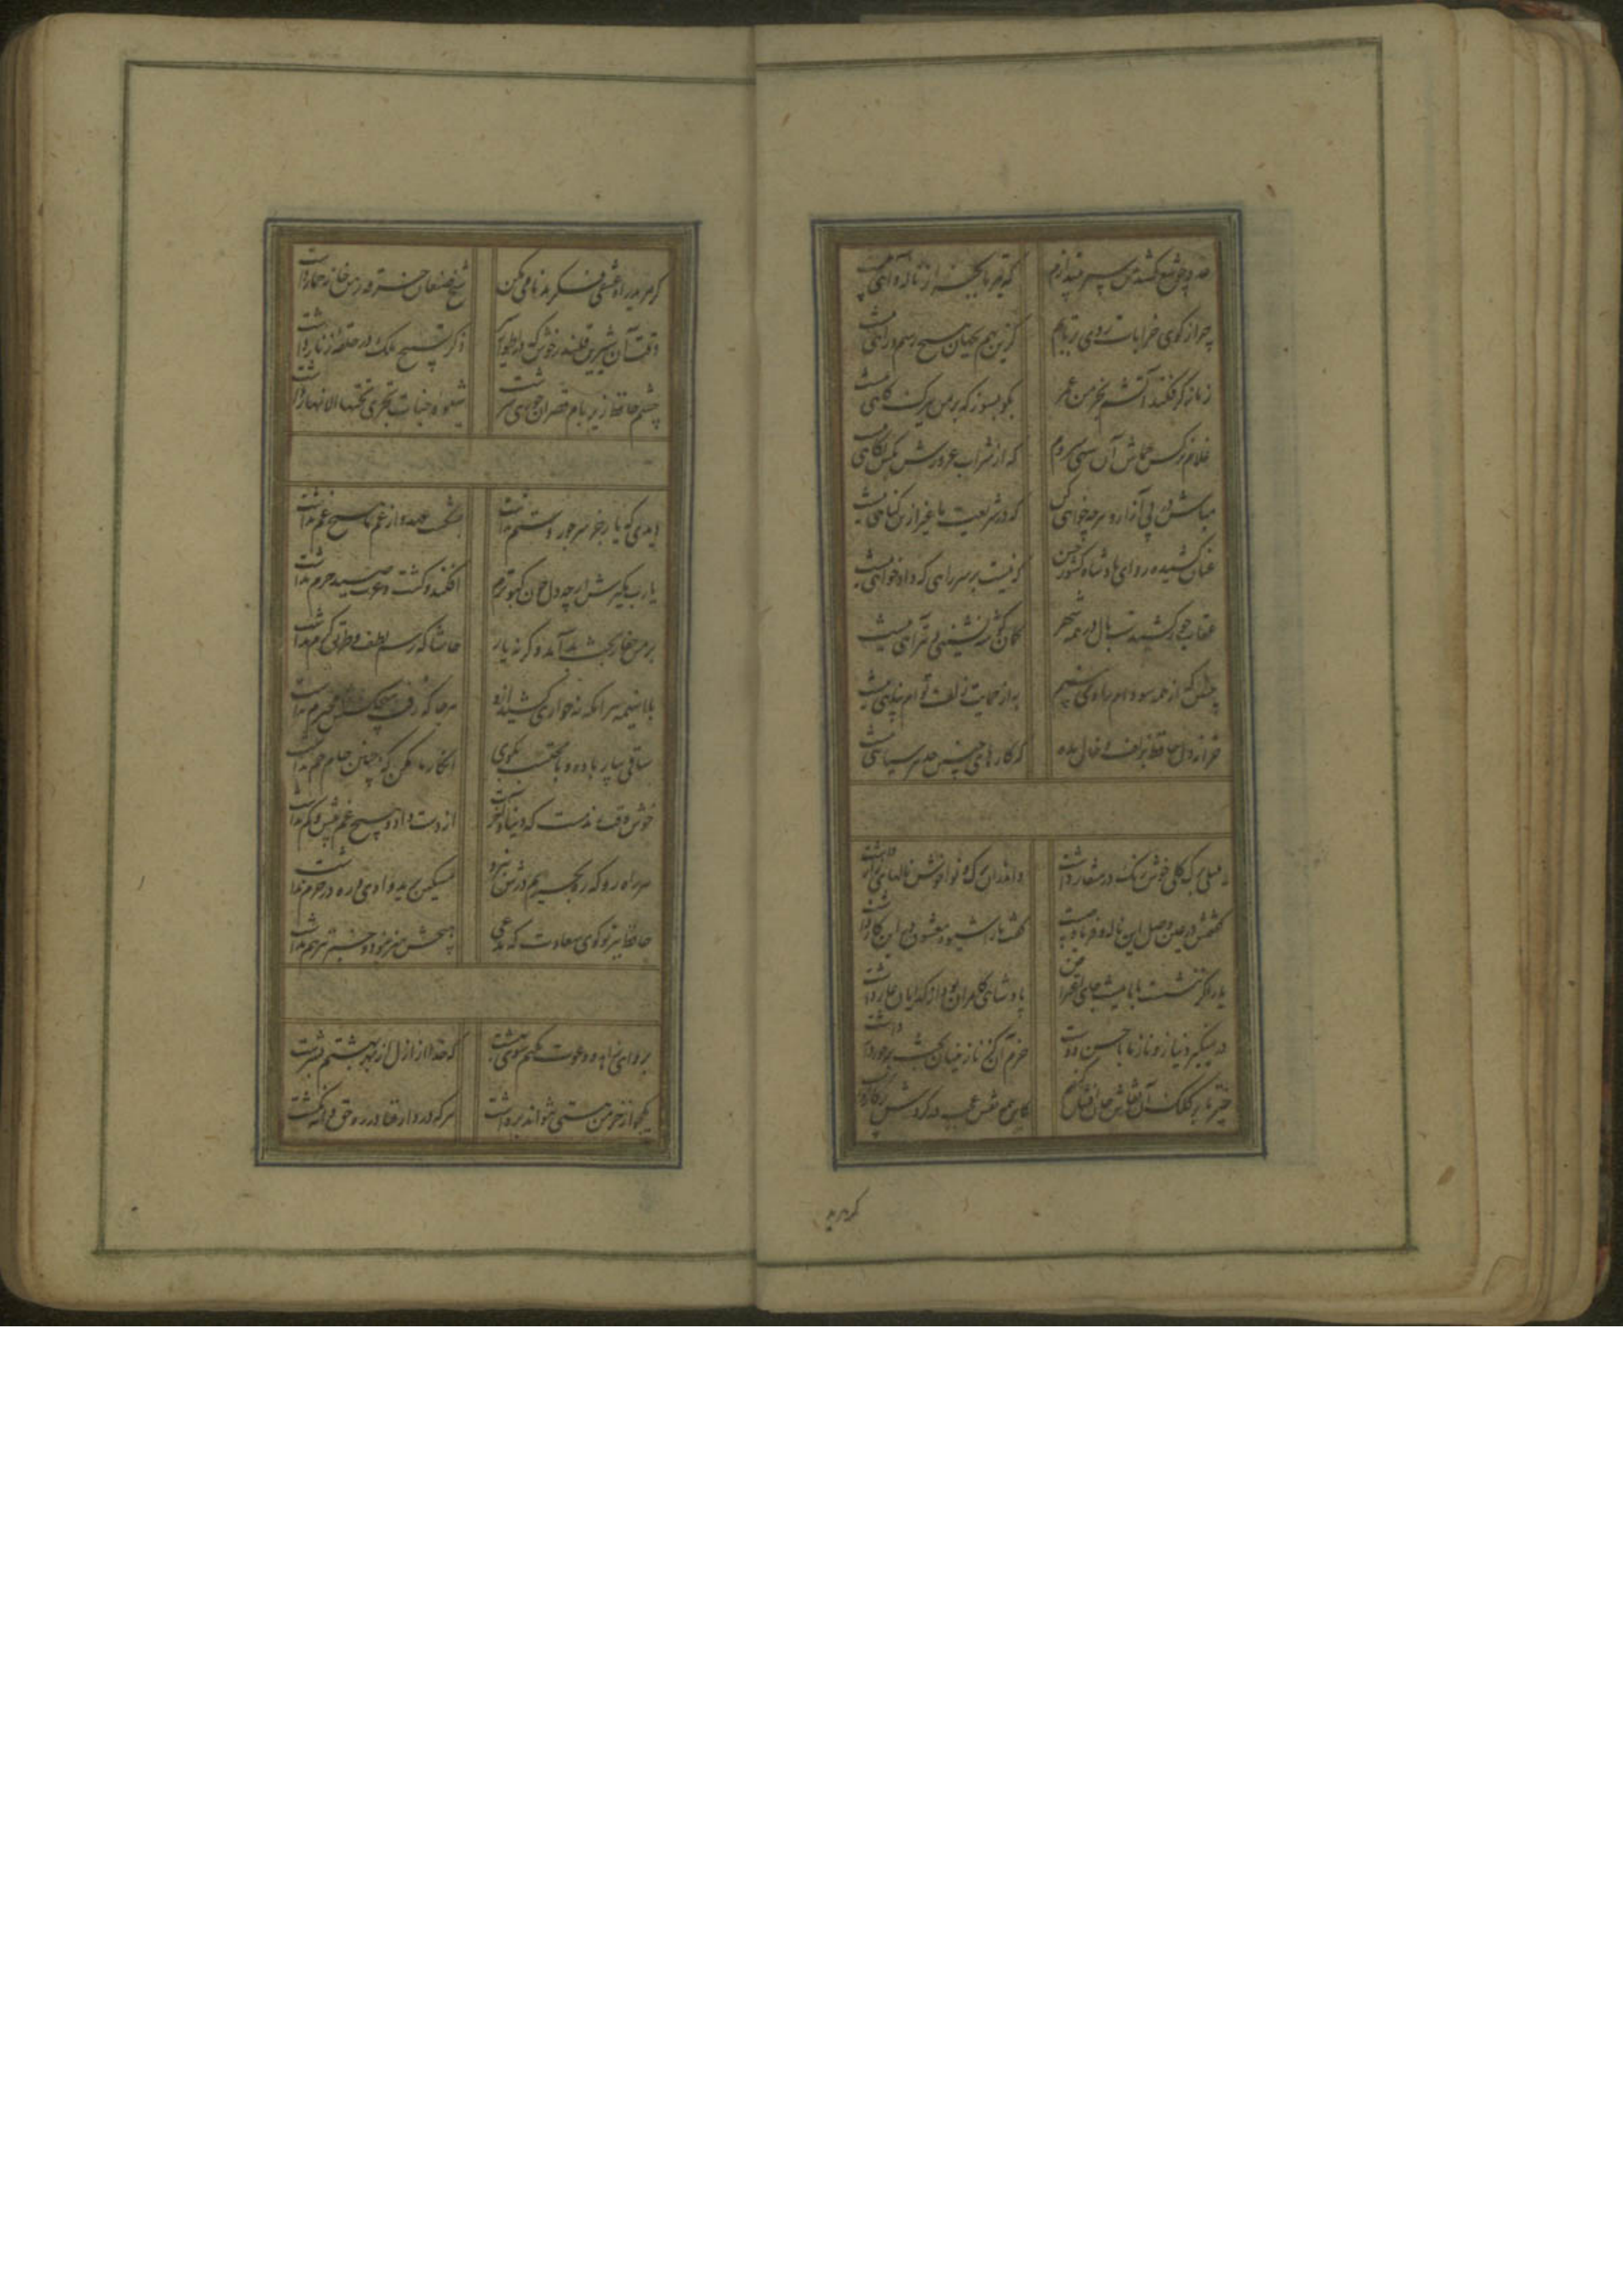 عدو چو تیغ کشد من سپر بیندازم که تیر ما بجز از ناله و آهی نیست
چرا ز کوی خرابات روی برتابم کزین بهم بجهان هیچ رسم و راهی نیست
زمانه گر فکند آتشم بخرمن عمر بگو بسوز که بر من ببرگ کاهی نیست
غلام نرگس جماش آن سهی سروم که از شراب غرورش بکس نگاهی نیست
مباش در پی آزار و هرچه خواهی کن که در شریعت ما غیر ازین گناهی نیست
عنان کشیده رو ای پادشاه کشور حسن که نیست بر سر راهی که دادخواهی نیست
عقاب جور کشیدست بال در همه شهر کمان گوشه نشینی و تیر آهی نیست
چنین که از همه سو دام راه می بینم به از حمایت زلف توام پناهی نیست
خزانه دل حافظ بزلف و خال مده که کارهای چنین حد هر سیاهی نیست
بلبلی برگ گلی خوش رنگ در منقار داشت واندران برگ و نوا خوش نالهای زار داشت
گفتمش در عین وصل این ناله و فریاد چیست گفت ما را جلوه معشوق در این کار داشت
یار اگر ننشست با ما نیست جای اعتراض پادشاهی کامران بود از گدایان عار داشت
در نمیگیرد نیاز و ناز ما با حسن دوست خرم آن کز نازنینان بخت برخوردار داشت
خیز تا بر کلک آن نقاش جان افشان کنیم کاین همه نقش عجب در گردش پرگار داشت
گر مرید
گر مرید راه عشقی فکر بدنامی مکن شیخ صنعان خرقه رهن خانه خمار داشت
وقت آن شیرین قلندر خوش که در اطوار سیر ذکر تسبیح ملک در حلقه زنار داشت
چشم حافظ زیر بام قصر آن حوری سرشت شیوه جنات تجری تحتها الانهار داشت
دیدی که یار جز سر جور و ستم نداشت بشکست عهد و از غم ما هیچ غم نداشت
یارب مگیرش ار چه دل چون کبوترم افکند و کشت و عزت صید حرم نداشت
بر من جفا ز بخت بد آمد وگرنه یار حاشا که رسم لطف و طریق کرم نداشت
با اینهمه هر آنکه نه خواری کشید ازو هر جا که رفت هیچکسش محترم نداشت
ساقی بیار باده و با محتسب بگوی انکار ما مکن که چنین جام جم نداشت
خوش وقت رند مست که دنیا و آخرت از دست داد و هیچ غم بیش و کم نداشت
هر راه رو که ره بحریم درش نبرد مسکین برید وادی و ره در حرم نداشت
حافظ ببر تو گوی سعادت که مدعی هیچش هنر نبود و خبر نیز هم نداشت
برو ای زاهد و دعوت مکنم سوی بهشت که خدا از ازل از بهر بهشتم نسرشت
یکجو از خرمن هستی نتواند برداشت هر که در دار فنا در ره حق دانه نکشت